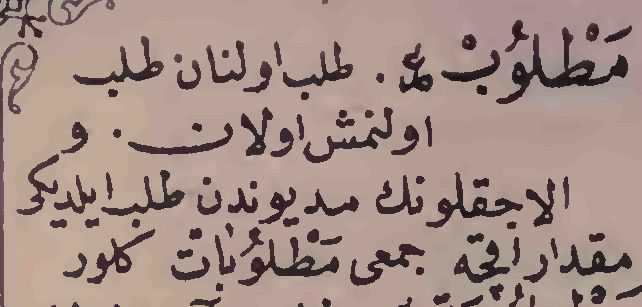 مَطْلُوبْ عـ . طلب اولنان طلب
اولنمش اولان . و
الاجقلونك مديوندن طلب ايلديكى
مقدار اقچه جمعى مَطْلُوبَاتْ كلور